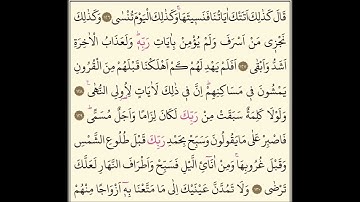 قَالَ كَذٰلِكَ اَتَتْكَ اٰيَاتُنَا فَنَسٖيتَهَاۚ وَكَذٰلِكَ الْيَوْمَ تُنْسٰى ﴿١٢٦﴾ وَكَذٰلِكَ
نَجْزٖي مَنْ اَسْرَفَ وَلَمْ يُؤْمِنْ بِاٰيَاتِ رَبِّهٖۜ وَلَعَذَابُ الْاٰخِرَةِ
اَشَدُّ وَاَبْقٰى ﴿١٢٧﴾ اَفَلَمْ يَهْدِ لَهُمْ كَمْ اَهْلَكْنَا قَبْلَهُمْ مِنَ الْقُرُونِ
يَمْشُونَ فٖي مَسَاكِنِهِمْۜ اِنَّ فٖي ذٰلِكَ لَاٰيَاتٍ لِاُولِي النُّهٰى ﴿١٢٨﴾
وَلَوْلَا كَلِمَةٌ سَبَقَتْ مِنْ رَبِّكَ لَكَانَ لِزَامًا وَاَجَلٌ مُسَمًّىۜ ﴿١٢٩﴾
فَاصْبِرْ عَلٰى مَا يَقُولُونَ وَسَبِّحْ بِحَمْدِ رَبِّكَ قَبْلَ طُلُوعِ الشَّمْسِ
وَقَبْلَ غُرُوبِهَاۚ وَمِنْ اٰنَٓائِ الَّيْلِ فَسَبِّحْ وَاَطْرَافَ النَّهَارِ لَعَلَّكَ
تَرْضٰى ﴿١٣٠﴾ وَلَا تَمُدَّنَّ عَيْنَيْكَ اِلٰى مَا مَتَّعْنَا بِهٖٓ اَزْوَاجًا مِنْهُمْ